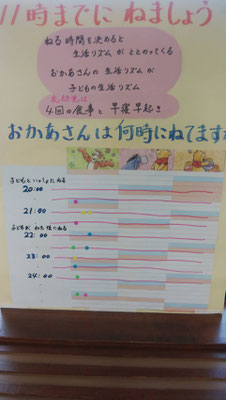 11時までに ねましょう
ねる時間を決めると
生活リズムが ととのってくる
おかあさんの 生活リズムが
子どもの生活リズム
乳幼児は
4回の食事と 早寝早起き
おかあさんは何時にねてますか
子どもといっしょにねる
20:00
21:00
子どもが ねた後にねる
22:00
23:00
24:00